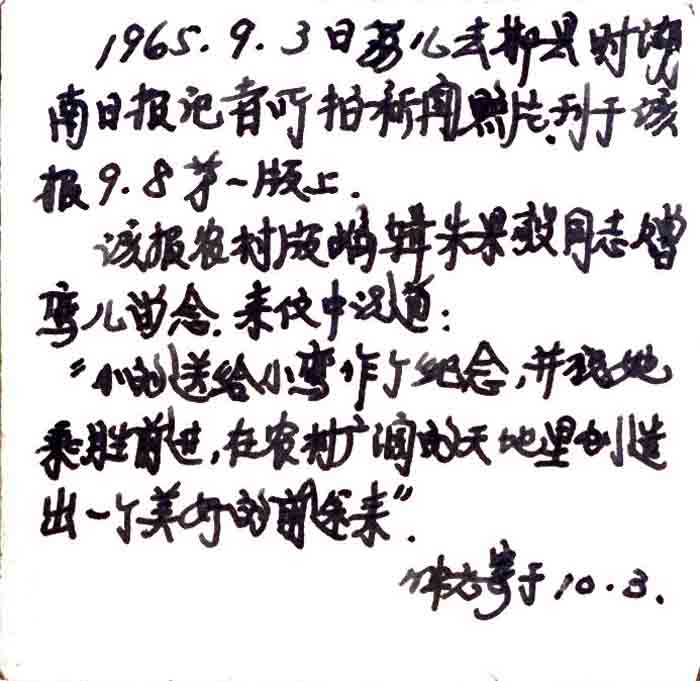 1965.9.3日弯儿去郴县时湖
南日报记者所拍新闻照片.刊于该
报9.8第一版上.
该报农村版编辑朱果毅同志赠
弯儿留念.来信中说道:
"小的送给小弯作个纪念,并祝她
乘胜前进,在农村广阔的天地里创造
出一个美好的前途来".
寄于10.3.